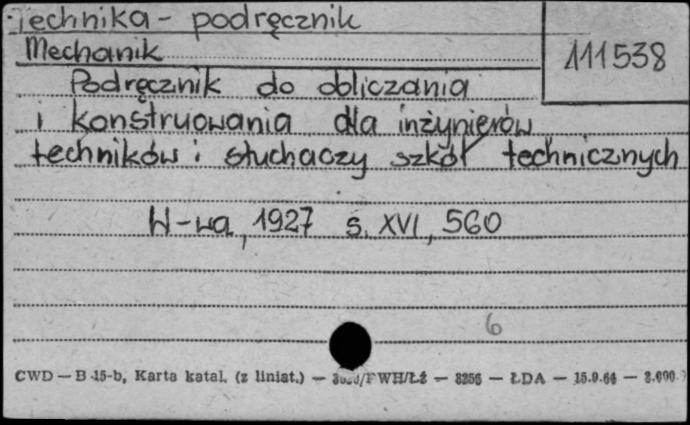 Technika - podręcznik
111538
Mechanik
Podręcznik do obliczania
i konstruowania dla inżynierów
techników i słuchaczy szkół technicznych
W-wa, 1927 s. XVI, 560
6
CWD — B 15-b, Karta katal. (z liniat.) — /FWH/Łź — 8256 — ŁDA — 15.9.64 —